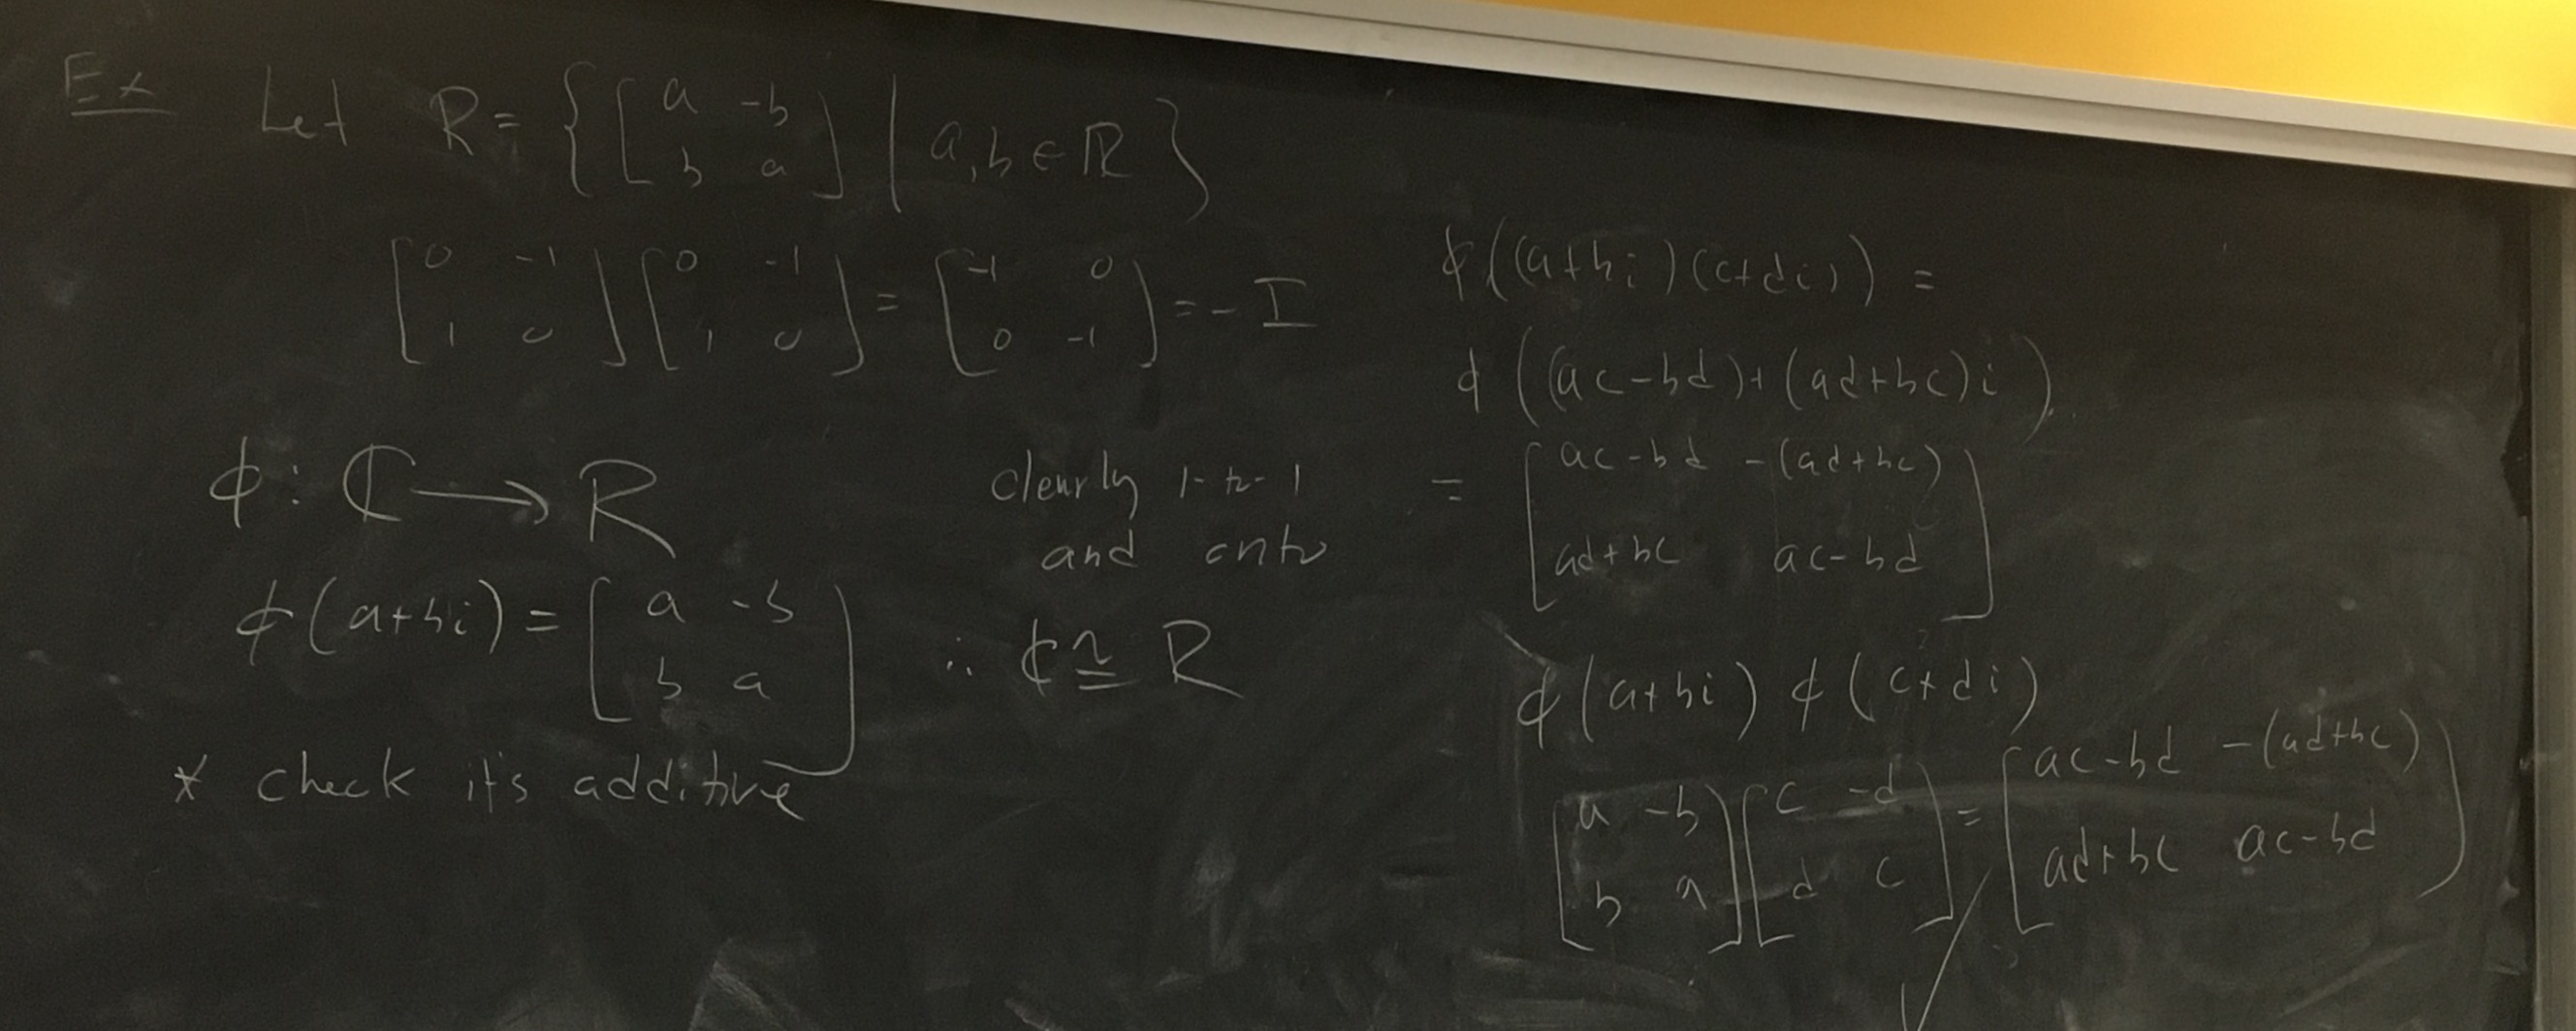 Ex Let R = { [ a -b ; b a ] | a,b ∈ ℝ }
[ 0 -1 ; 1 0 ] [ 0 -1 ; 1 0 ] = [ -1 0 ; 0 -1 ] = - I
ϕ: ℂ → R
ϕ(a+bi) = [ a -b ; b a ]
* check it's additive
clearly 1-to-1
and onto
∴ ℂ ≅ R
ϕ((a+bi)(c+di)) =
ϕ((ac-bd)+(ad+bc)i)
= [ ac-bd -(ad+bc) ; ad+bc ac-bd ]
ϕ(a+bi) ϕ(c+di)
[ a -b ; b a ] [ c -d ; d c ] = [ ac-bd -(ad+bc) ; ad+bc ac-bd ]
✓